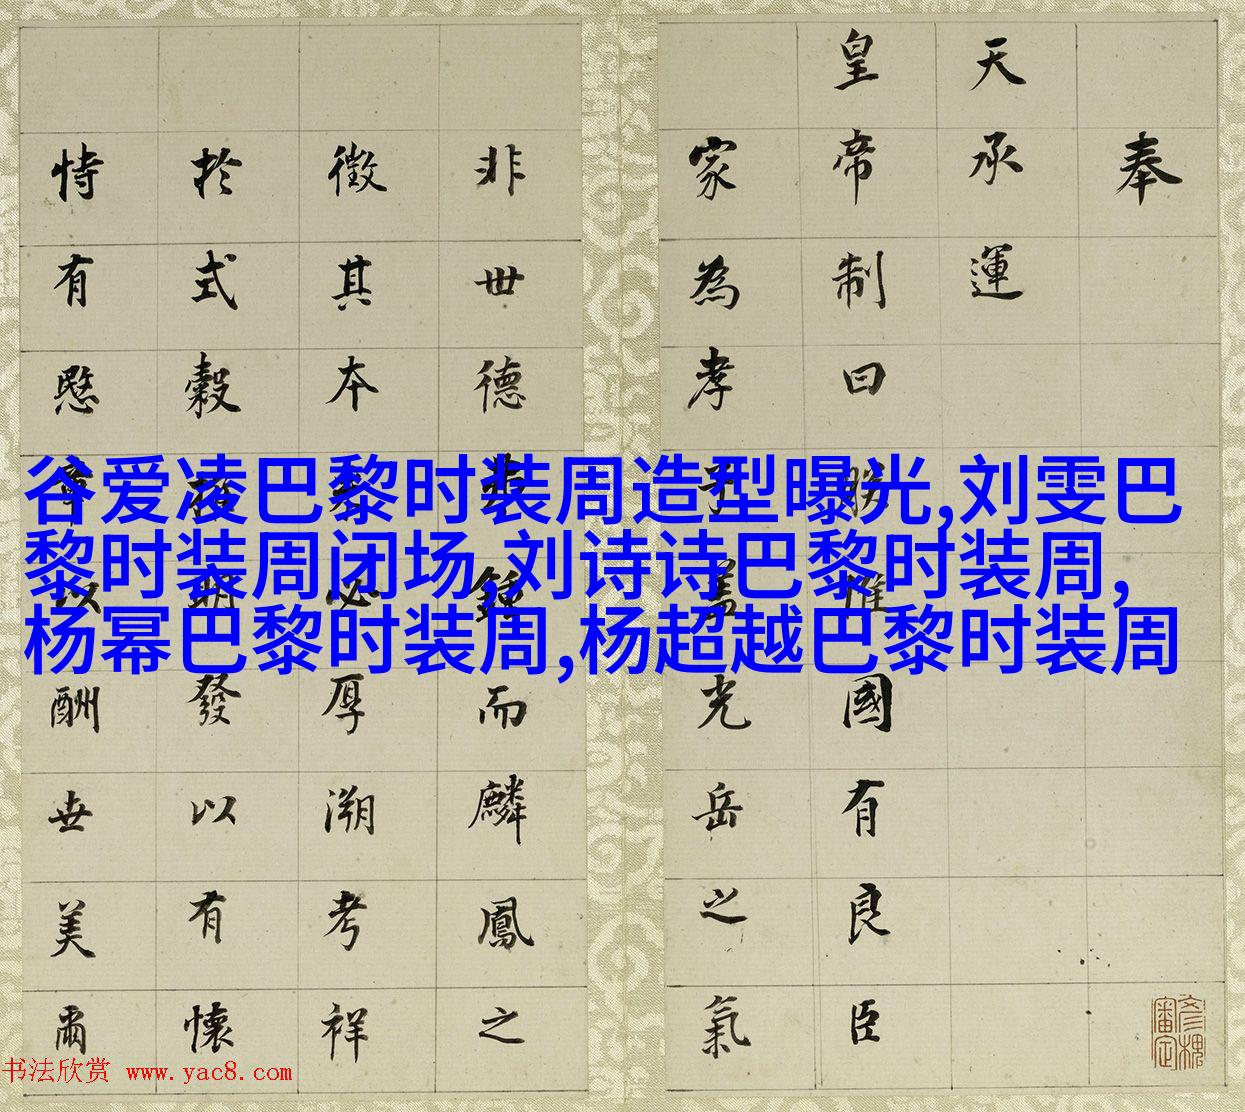 奉
天承運
皇帝制曰朕惟國有良臣
家為孝子蓋光岳之氣
非世德鍾而麟鳳之
徵其本必厚溯考祥
於式穀明發以有懷
恃有愍章以酬世美爾
谷爱凌巴黎时装周造型曝光,刘雯巴
黎时装周闭场,刘诗诗巴黎时装周,
杨幂巴黎时装周,杨超越巴黎时装周
彥槐審定
书法欣赏 www.yac8.com